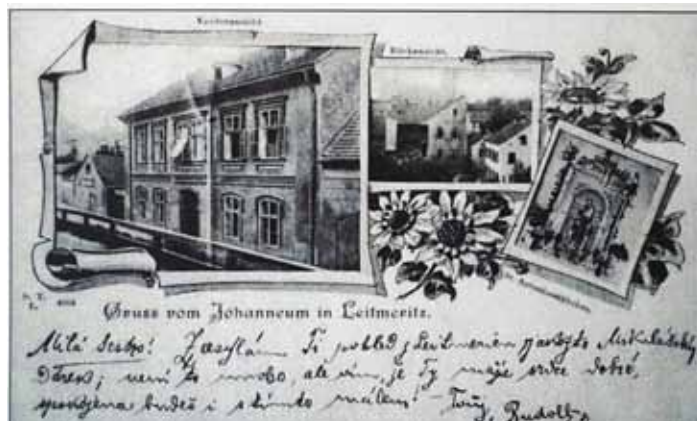 Vorderansicht
Rückansicht.
Gruss vom Johanneum in Leitmeritz.
Milá Sestro! Zasýlám Ti pohled z Leitmeritz jakožto Mikulášský
Dárek; není to mnoho, ale vím, že Ty máš srdce dobré,
spokojena budeš i s tímto málem! – Tvůj Rudolf.